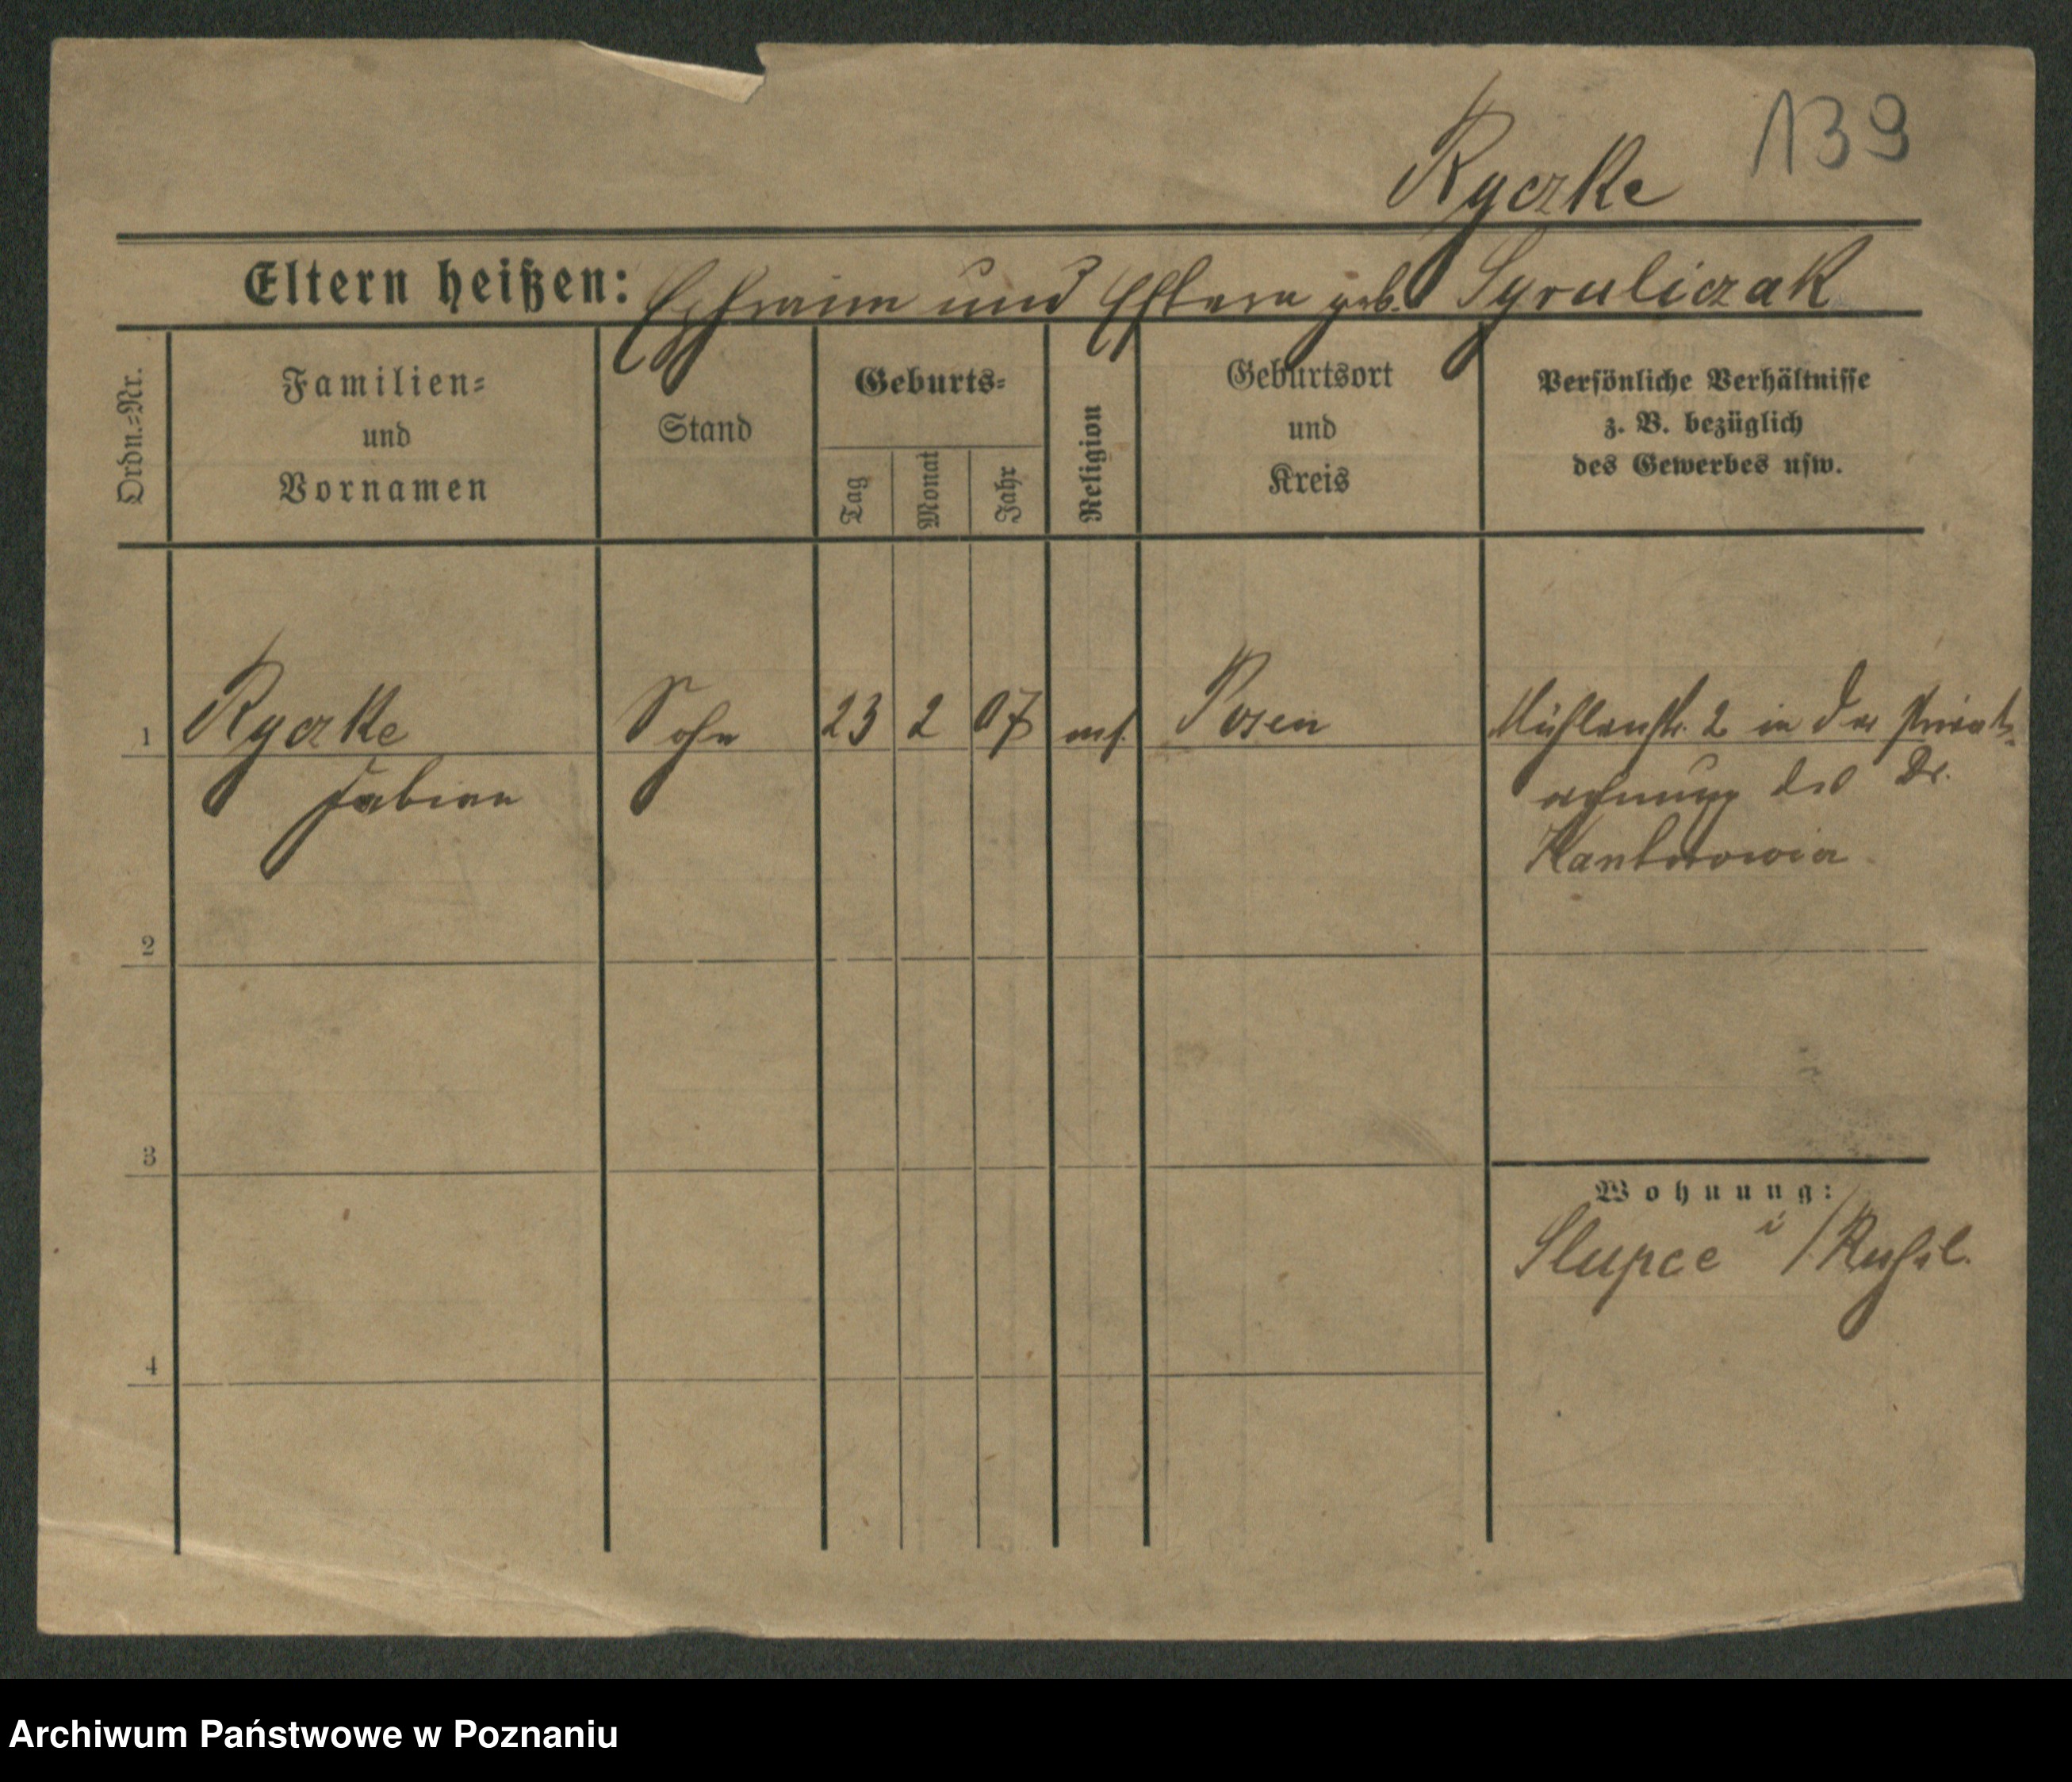 139
Ryczke
Eltern heißen: Ephraim und Estera geb. Syruliczak
Ordn.=Nr.
Familien=
und
Vornamen
Stand
Geburts=
Tag
Monat
Jahr
Religion
Geburtsort
und
Kreis
Persönliche Verhältnisse
z. B. bezüglich
des Gewerbes usw.
1 Ryczke Sohn 23 2 07 mos. Posen Mühlenstr. 2 in der Privat-
Fabian wohnung des Dr.
Kantorowicz
2
3
Wohnung:
Slupce i/Russl.
4
Archiwum Państwowe w Poznaniu